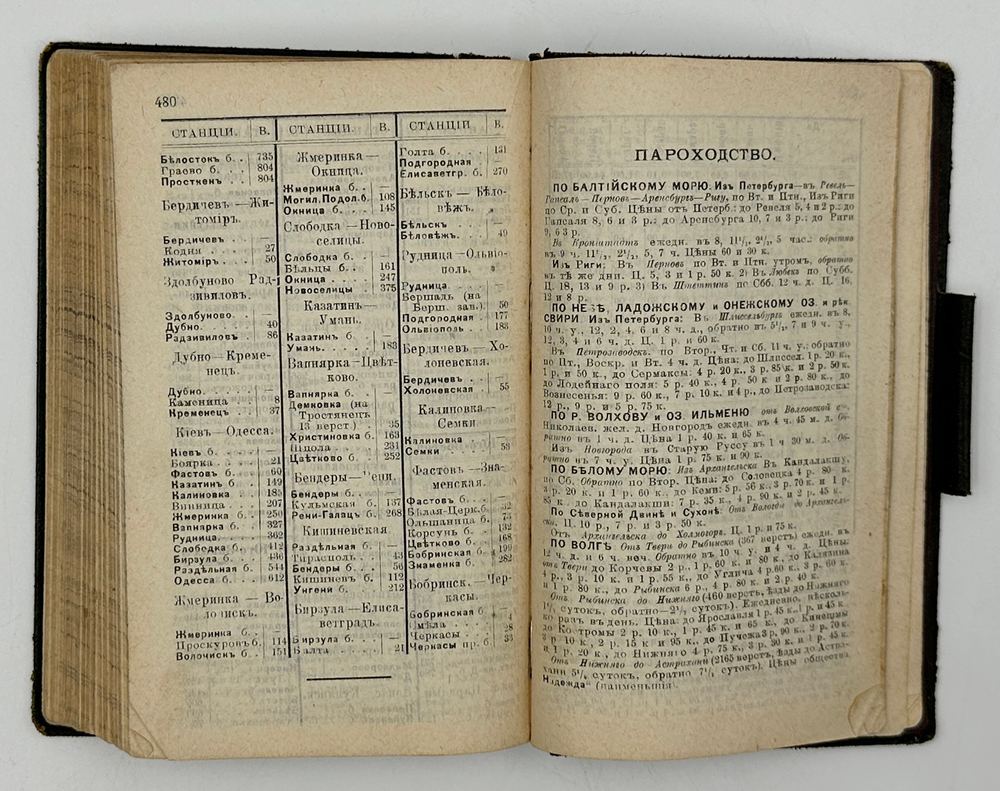 480
СТАНЦІИ. В.
Бѣлостокъ б. . 735
Граево б. . . . 804
Просткенъ . . . 804
Бердичевъ — Жи-
томіръ.
Бердичевъ . . . —
Кодня . . . . 27
Житоміръ . . . 50
Здолбуново — Рад-
зивиловъ.
Здолбуново . . . —
Дубно . . . . 40
Радзивиловъ . . 86
Дубно — Креме-
нецъ.
Дубно . . . . —
Каменица . . . 8
Кременецъ . . . 37
Кіевъ — Одесса.
Кіевъ б. . . . —
Боярка . . . . 21
Фастовъ б. . . 60
Казатинъ б. . . 149
Калиновка . . . 185
Винница . . . . 207
Жмеринка б. . . 250
Вапнярка б. . . 327
Рудница . . . . 362
Слободка б. . . 412
Бирзула б. . . 436
Раздѣльная б. . 544
Одесса б. . . . 612
Жмеринка — Во-
лочискъ.
Жмеринка б. . . —
Проскуровъ б. . 114
Волочискъ б. . 151
СТАНЦІИ. В.
Жмеринка —
Окница.
Жмеринка б. . —
Могил.Подол.б. 108
Окница б. . . 145
Слободка — Ново-
селицы.
Слободка б. . . —
Бѣльцы б. . . 161
Окница . . . . 247
Новоселицы . . 375
Казатинъ —
Умань.
Казатинъ б. . . —
Умань. . . . . 183
Вапнярка — Цвѣт-
ково.
Вапнярка б. . . —
Демковка (на
Тростянецъ
13 верст.) . . 35
Христиновка б. 163
Шпола . . . . 231
Цвѣтково б. . . 252
Бендеры — Рени.
Бендеры б. . . —
Кульмская б. . 137
Рени-Галацъ б. 268
Кишиневская.
Раздѣльная б. . —
Тирасполь . . . 43
Бендеры б. . . 56
Кишиневъ б. . 112
Унгени б. . . 212
Бирзула — Елиса-
ветградъ.
Бирзула б. . . —
Балта . . . . 21
СТАНЦІИ В.
Голта б. . . . 131
Подгородная . . —
Елисаветгр. б. 270
Бѣльскъ — Бѣло-
вѣжъ.
Бѣльскъ . . . —
Бѣловѣжъ. . . 49
Рудница — Ольвіо-
поль.
Рудница . . . —
Бершадь (на
Берш. зав.) . 50
Подгородная . . 177
Ольвіополь . . 183
Бердичевъ — Хо-
лоневская.
Бердичевъ . . —
Холоневская . . 55
Калиновка —
Семки.
Калиновка . . —
Семки . . . . 53
Фастовъ — Зна-
менская.
Фастовъ б. . . —
Бѣлая-Церк.б. 52
Ольшаница б. 73
Корсунь б. . . 132
Цвѣтково б. . 168
Бобринская б. 199
Знаменка б. . 282
Бобринск. — Чер-
касы.
Бобринская б. —
Смѣла . . . . 4
Черкасы . . . 28
Черкасы пр. б. 33
ПАРОХОДСТВО.
ПО БАЛТІЙСКОМУ МОРЮ: Изъ Петербурга—въ Ревель—
Гапсаль—Перновъ—Аренсбургъ—Ригу, по Вт. и Птн., Изъ Риги
по Ср. и Суб. Цѣны отъ Петерб.: до Ревеля 5, 4 и 2 р.: до
Гапсаля 8, 6 и 3 р.: до Аренсбурга 10, 7 и 3 р.: до Риги
9, 6 3 р.
Въ Кронштадтъ ежедн. въ 8, 11½, 2½, 5 час.: обратно
въ 9 ч. 11½, 2½, 5, 7 ч. Цѣны 60 и 30 к.
Изъ Риги: Въ Перновъ по Вт. и Птн. утромъ, обратно
въ тѣ же дни. Ц. 5, 3 и 1 р. 50 к. 2) Въ Любекъ по Субб.
Ц. 18, 13 и 9 р. 3) Въ Штеттинъ по Сбб. 12 ч. д. Ц. 16,
12 и 8 р.
ПО НЕВѢ, ЛАДОЖСКОМУ и ОНЕЖСКОМУ ОЗ. и рѣк.
СВИРИ. Изъ Петербурга: Въ Шлиссельбургъ ежедн. въ 8,
10 ч. у., 12, 2, 4, 6 и 8 ч. д., обратно въ 5½, 7 и 9 ч. у.,
12, 3, 4 и 6 ч. д. Ц. 1 р. и 60 к.
Въ Петрозаводскъ. по Втор., Чт. и Сб. 11 ч. у.: обратно
по Пт., Воскр. и Вт. 4 ч. д. Цѣна: до Шлиссел. 1 р. 20 к.,
1 р. и 50 к., до Сермаксы: 4 р. 20 к., 3 р. 85 к. и 2 р. 50 к.,
до Лодейнаго поля: 5 р. 40 к., 4 р. 50 к и 2 р. 80 к., до
Вознесенья: 9 р. 60 к., 7 р. 10 к. и 4 р., до Петрозаводска:
12 р., 9 р. и 5 р. 75 к.
ПО Р. ВОЛХОВУ и ОЗ. ИЛЬМЕНЮ отъ Волховской с.,
Николаев. жел. д. Новгородъ ежедн. въ 4 ч. 45 м. д. Об-
ратно въ 1 ч. д. Цѣна 1 р. 40 к. и 65 к.
Изъ Новгорода въ Старую Руссу въ 1 ч 30 м. д. Об-
ратно въ 7 ч. у. Цѣна 1 р. 75 к. и 90 к.
ПО БѢЛОМУ МОРЮ: Изъ Архангельска Въ Кандалакшу,
по Сб. Обратно по Втор. Цѣна: до Соловецка 4 р. 80 к.
3 р. 20 к. и 1 р. 60 к., до Кеми: 5 р. 56 к., 3 р. 70 к. и 1 р.
85 к., до Кандалакши: 7 р. 35 к., 4 р. 90 к. и 2 р. 45 к.
По Сѣверной Двинѣ и Сухонѣ: Отъ Вологды до Архангель-
ска. Ц. 10 р., 7 р. и 3 р. 50 к.
Отъ Архангельска до Холмогоръ. Ц. 1 р. и 75 к.
ПО ВОЛГѢ. Отъ Твери до Рыбинска (367 верстъ) ежедн. въ
12 ч. д. и 6 ч. веч. Обратно въ 10 ч. у. и 4 ч. д. Цѣны:
отъ Твери до Корчевы 2 р., 1 р. 60 к. и 80 к., до Калязина
4 р., 3 р. 10 к. и 1 р. 55 к., до Углича 4 р. 60 к., 3 р. 60 к.
и 1 р. 80 к., до Рыбинска 6 р., 4 р. 80 к. и 2 р. 40 к.
Отъ Рыбинска до Нижняго (460 верстъ, ѣзды до Нижняго
1½ сутокъ, обратно—2½ сутокъ). Ежедневно, нѣсколь-
ко разъ въ день. Цѣна: до Ярославля 1 р. 45 к., 1 р. и 45 к.,
до Костромы 2 р. 10 к., 1 р. 45 к. и 65 к., до Кинешмы
3 р. 10 к., 2 р. 15 к и 95 к., до Пучежа 3 р. 90 к., 2 р. 70 к.
и 1 р. 20 к., до Нижняго 4 р. 75 к., 3 р. 30 к. и 1 р. 45 к.
Отъ Нижняго до Астрахани (2165 верстъ, ѣзды до Астра-
хани 5½ сутокъ, обратно 7½ сутокъ). Цѣны общества
„Надежда“ (наименьшія).